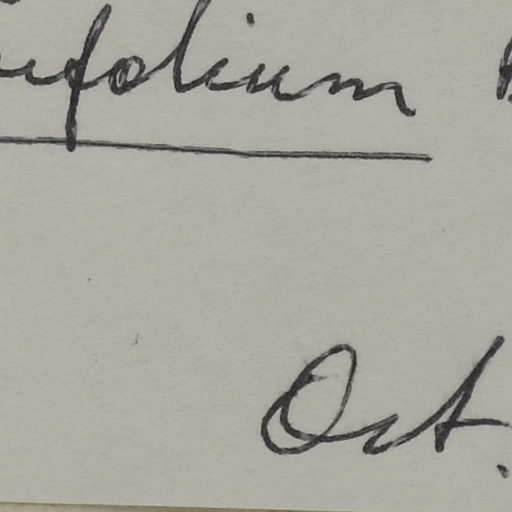 ifolium
Oct.